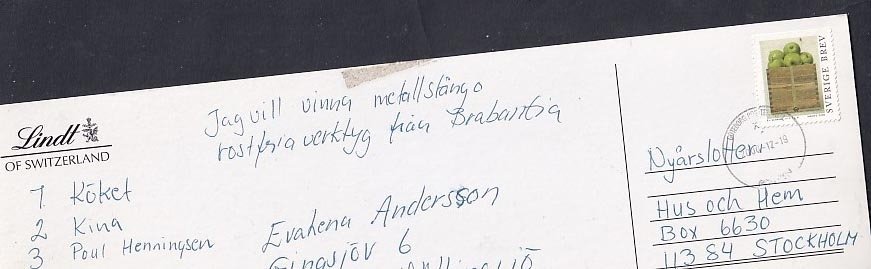 Lindt
OF SWITZERLAND
Jag vill vinna metallstänger
rostfria verktyg från Brabantia
1 Köket
2 Kina
3 Poul Henningsen
Evalena Andersson
6
SVERIGE BREV
Nyårslotteri
Hus och Hem
Box 6630
113 84 STOCKHOLM